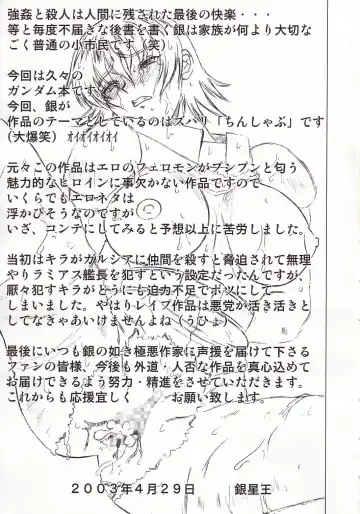 強姦と殺人は人間に残された最後の快楽・・・
等と毎度不届ぎな後書を書く銀は家族が何より大切な
ごく普通の小市民です（笑）
今回は久々の
ガンダム本です
今回、銀が
作品のテーマとしているのはズバリ「ちんしゃぶ」です
（大爆笑）ｵｲｵｲｵｲｵｲ
元々この作品はエロのフェロモンがプンプンと匂う
魅力的なヒロインに事欠かない作品ですので
いくらでもエロネタは
浮かびそうなのですが
いざ、コンテにしてみると予想以上に苦労しました。
当初はキラがガルシアに仲間を殺すと脅迫されて無理
やりラミアス艦長を犯すという設定だったんですが、
厭々犯すキラがどうにも迫力不足でボツにして
しまいました。やはりレイプ作品は悪党が活き活きと
してなきゃあいけませんよね（うひょ）
最後にいつも銀の如き極悪作家に声援を届けて下さる
ファンの皆様、今後も外道・人否な作品を真心込めて
お届けできるよう努力・精進をさせていただきます。
これからも応援宜しく　　お願い致します。
２００３年４月２９日　　銀星王